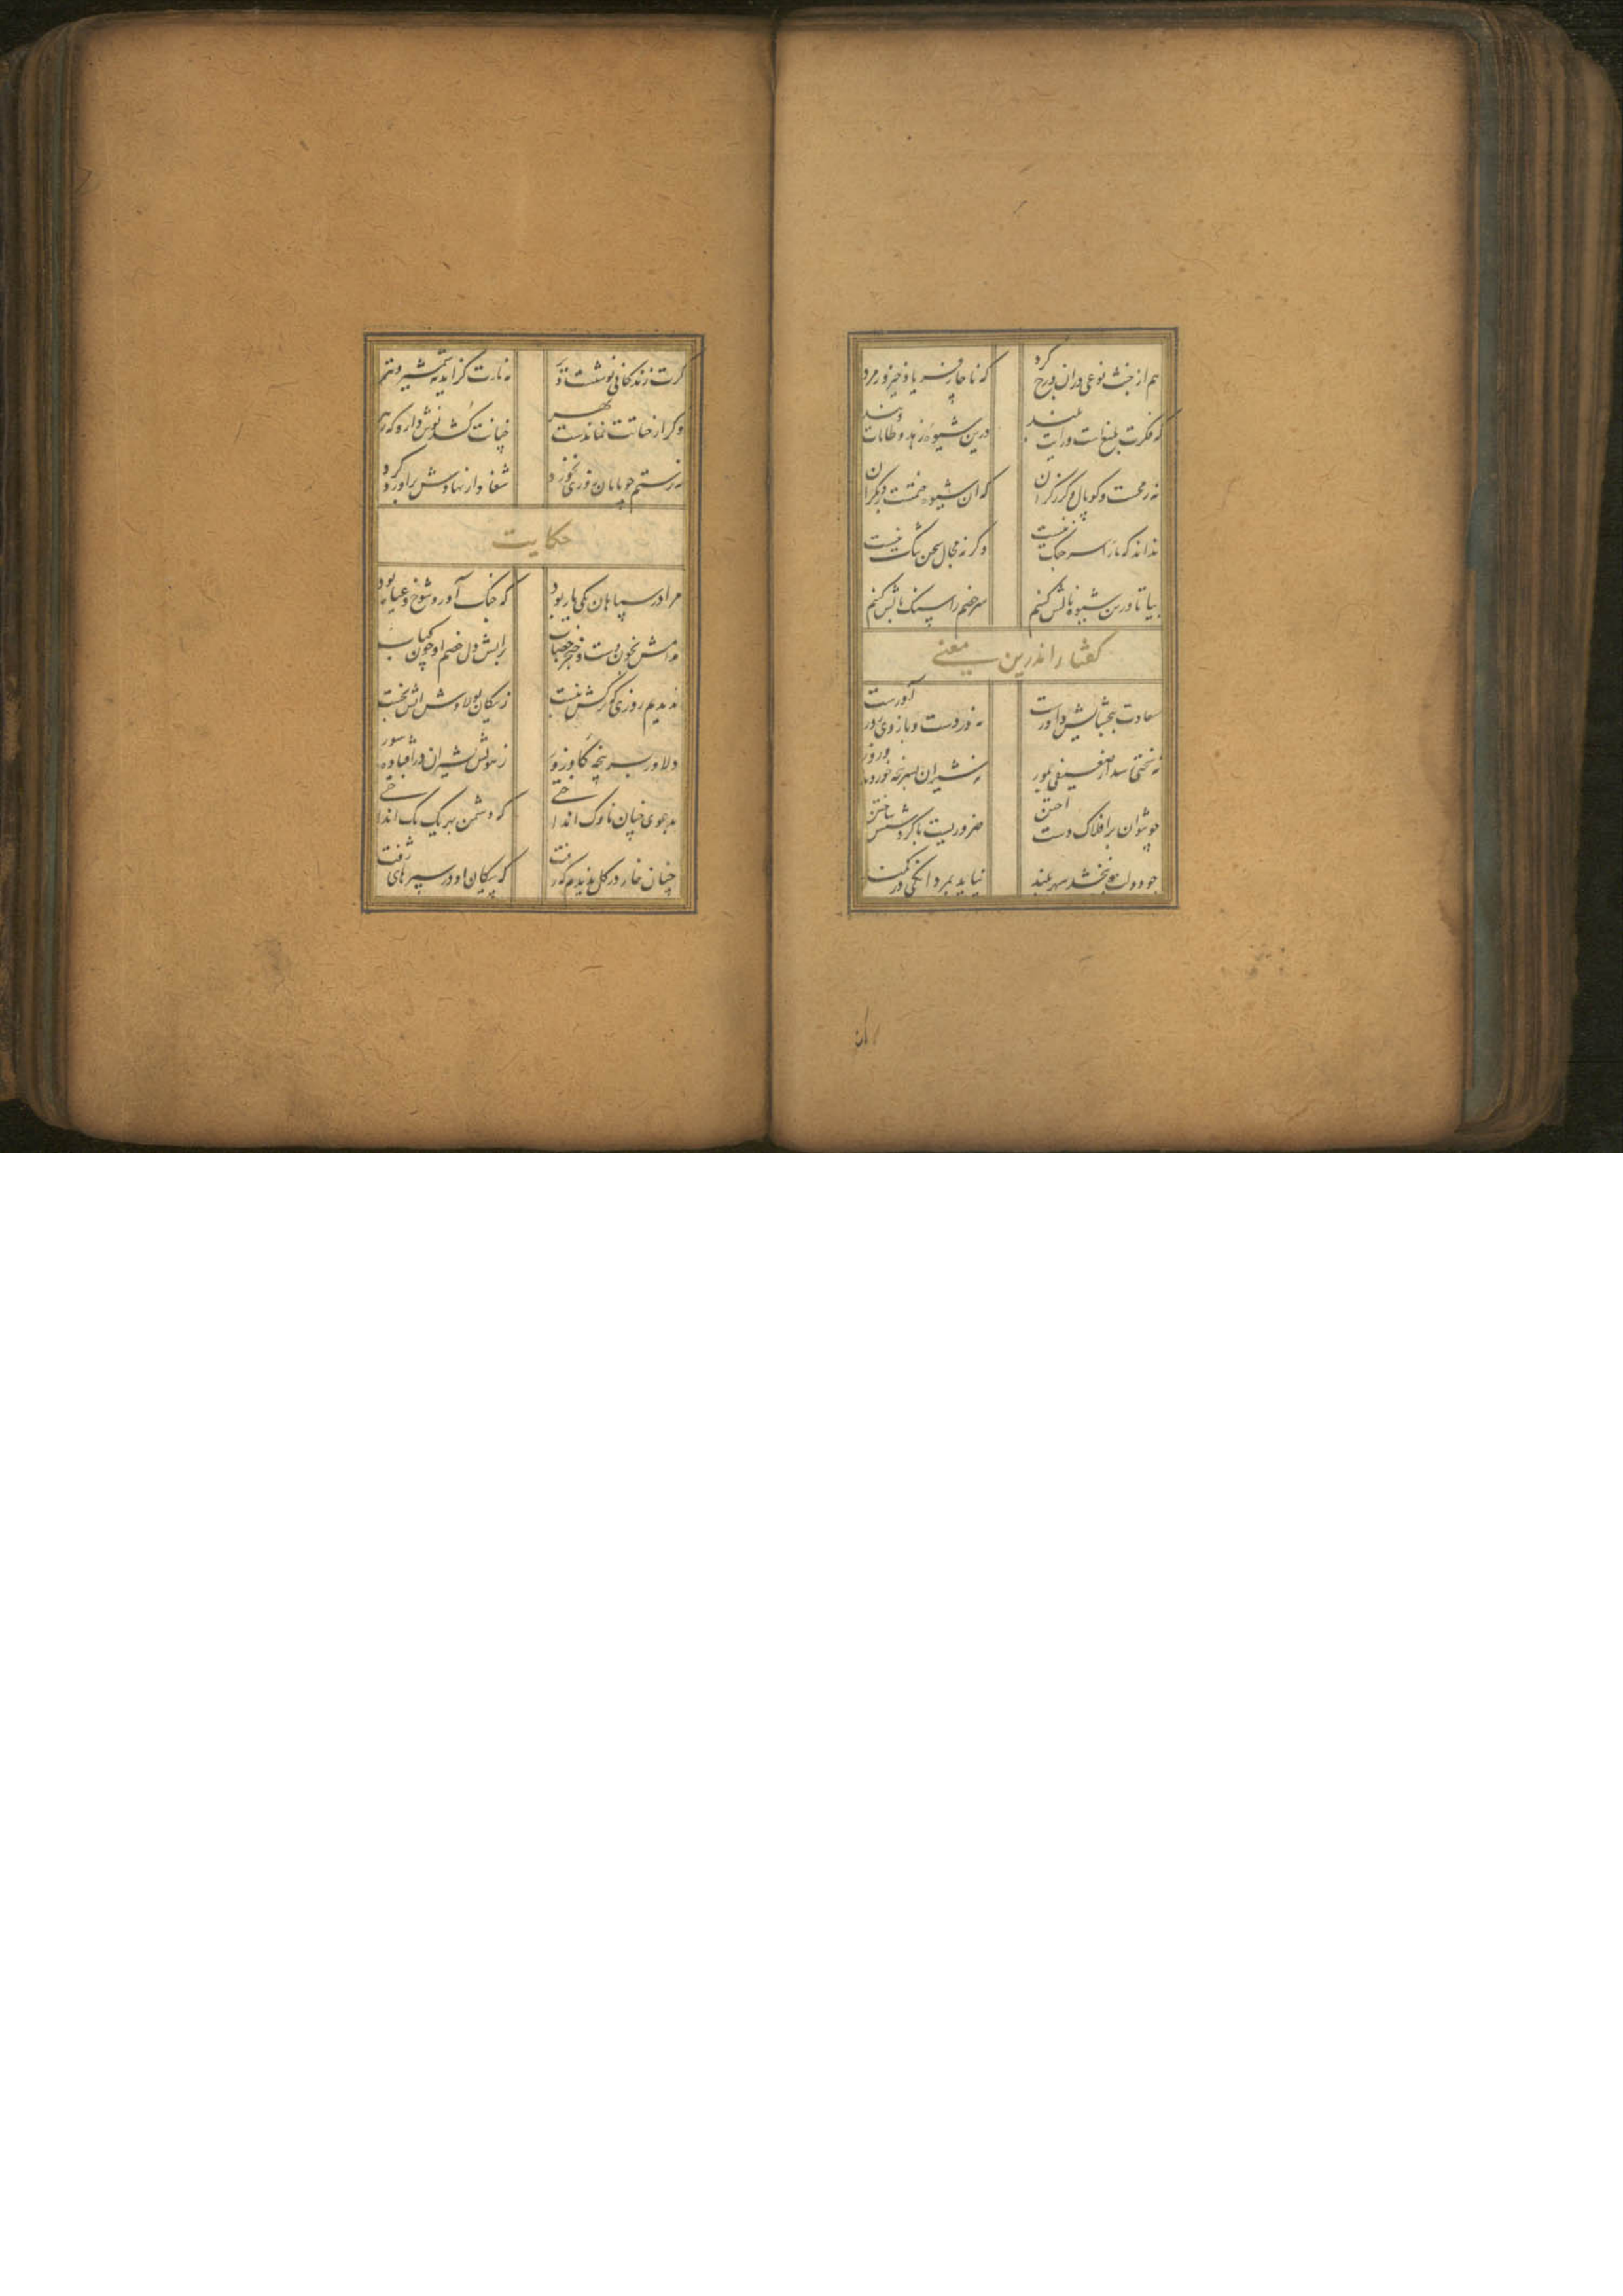 هم از خبث نوعی دران درج کرد
که ناچار فریاد خیزد ز مرد
که فکرت بلیغ است و رایت بلند
درین شیوهٔ زهد و طامات و پند
نه در خشت و کوپال و گرز گران
که آن شیوه ختمست بر دیگران
نداند که ما را سر جنگ نیست
وگرنه مجال سخن تنگ نیست
بیا تا درین شیوه چالش کنیم
سر خصم را سنگ بالش کنیم
گفتار اندرین معنی
سعادت ببخشایش داورست
نه در دست و بازوی زورآورست
نه سختی رسد از ضعیفی بمور
نه شیران بسرپنجه خوردند و زور
چو نتوان بر افلاک دست آختن
ضروریست با گردشش ساختن
چو دولت نبخشد سپهر بلند
نیاید بمردانگی در کمند
گرت زندگانی نوشتست دیر
نه مارت گزاید نه شمشیر و تیر
وگر از حیاتت نماندست بهر
چنانت کشد نوش دارو که زهر
نه رستم چو پایان روزی بخورد
شغاد از نهادش برآورد گرد
حکایت
مرا در سپاهان یکی یار بود
که جنگ آور و شوخ و عیار بود
مدامش بخون دست و خنجر خضاب
بر آتش دل خصم او چون کباب
ندیدیم روزی که ترکش نبست
ز پیکان پولادش آتش نجست
دلاور بسرپنجهٔ گاوزور
ز هولش بشیران در افتاده شور
بدعوی چنان ناوک انداختی
که دشمن بهر یک یک انداختی
چنان خار در گل ندیدم که رفت
که پیکان او در سپرهای زفت